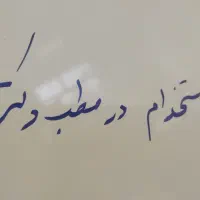 ستخدام در مطب دکتر